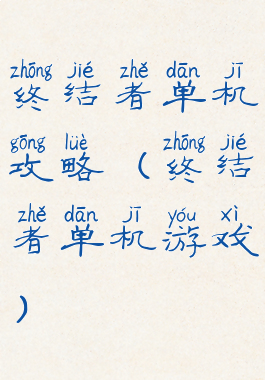 zhōng jié zhě dān jī
终结者单机
gōng lüè zhōng jié
攻略（终结
zhě dān jī yóu xì
者单机游戏
）